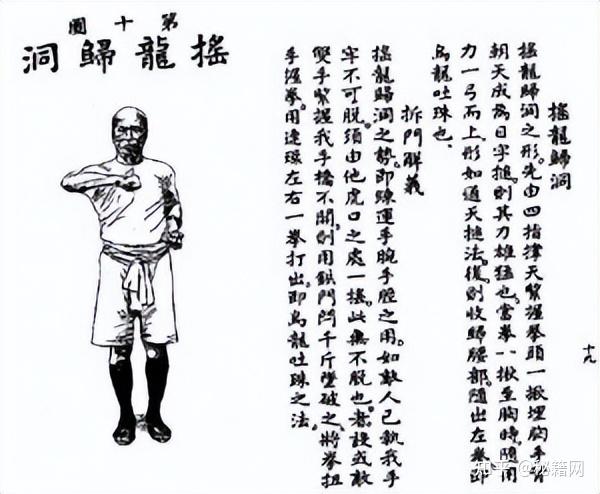 第十圖
搖龍歸洞
搖龍歸洞
搖龍歸洞之形。先由四指撑天緊握拳頭一撳埋胸手背
朝天成為日字搥。則其力雄猛也。當拳一撳至胸時。隨用
力一弓而上。形如通天搥法。復則收歸腰部。隨出左拳。即
烏龍吐珠也。
拆門解義
搖龍歸洞之勢。即運手腕手脛之用。如敵人已執我手
牢不可脫。須由他虎口之處一搖。此無不脫也。若設或敵
雙手緊握我手橋不開。則用鉄門閂千斤墜破之。將拳扭
手握拳。用連環左右一拳打出。即烏龍吐珠之法。
十九
知乎 @秘籍网